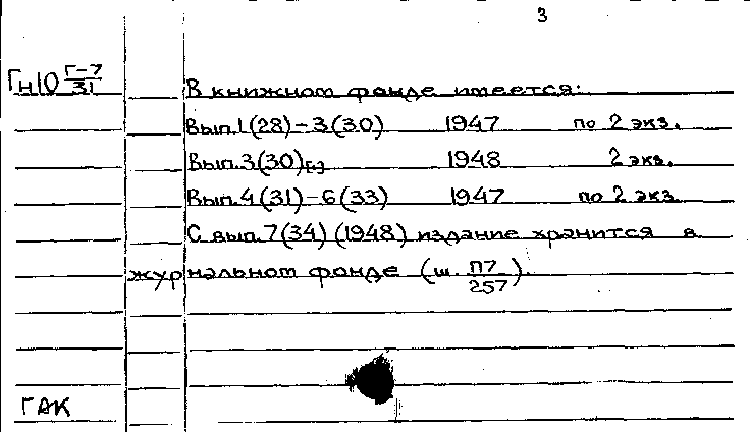 3
Гн10 Г-7/31
В книжном фонде имеется:
Вып.1(28)-3(30) 1947 по 2 экз.
Вып.3(30)[-] 1948 2 экз.
Вып.4(31)-6(33) 1947 по 2 экз.
С вып.7(34) (1948) издание хранится в
журнальном фонде (ш. П7/257).
ГАК